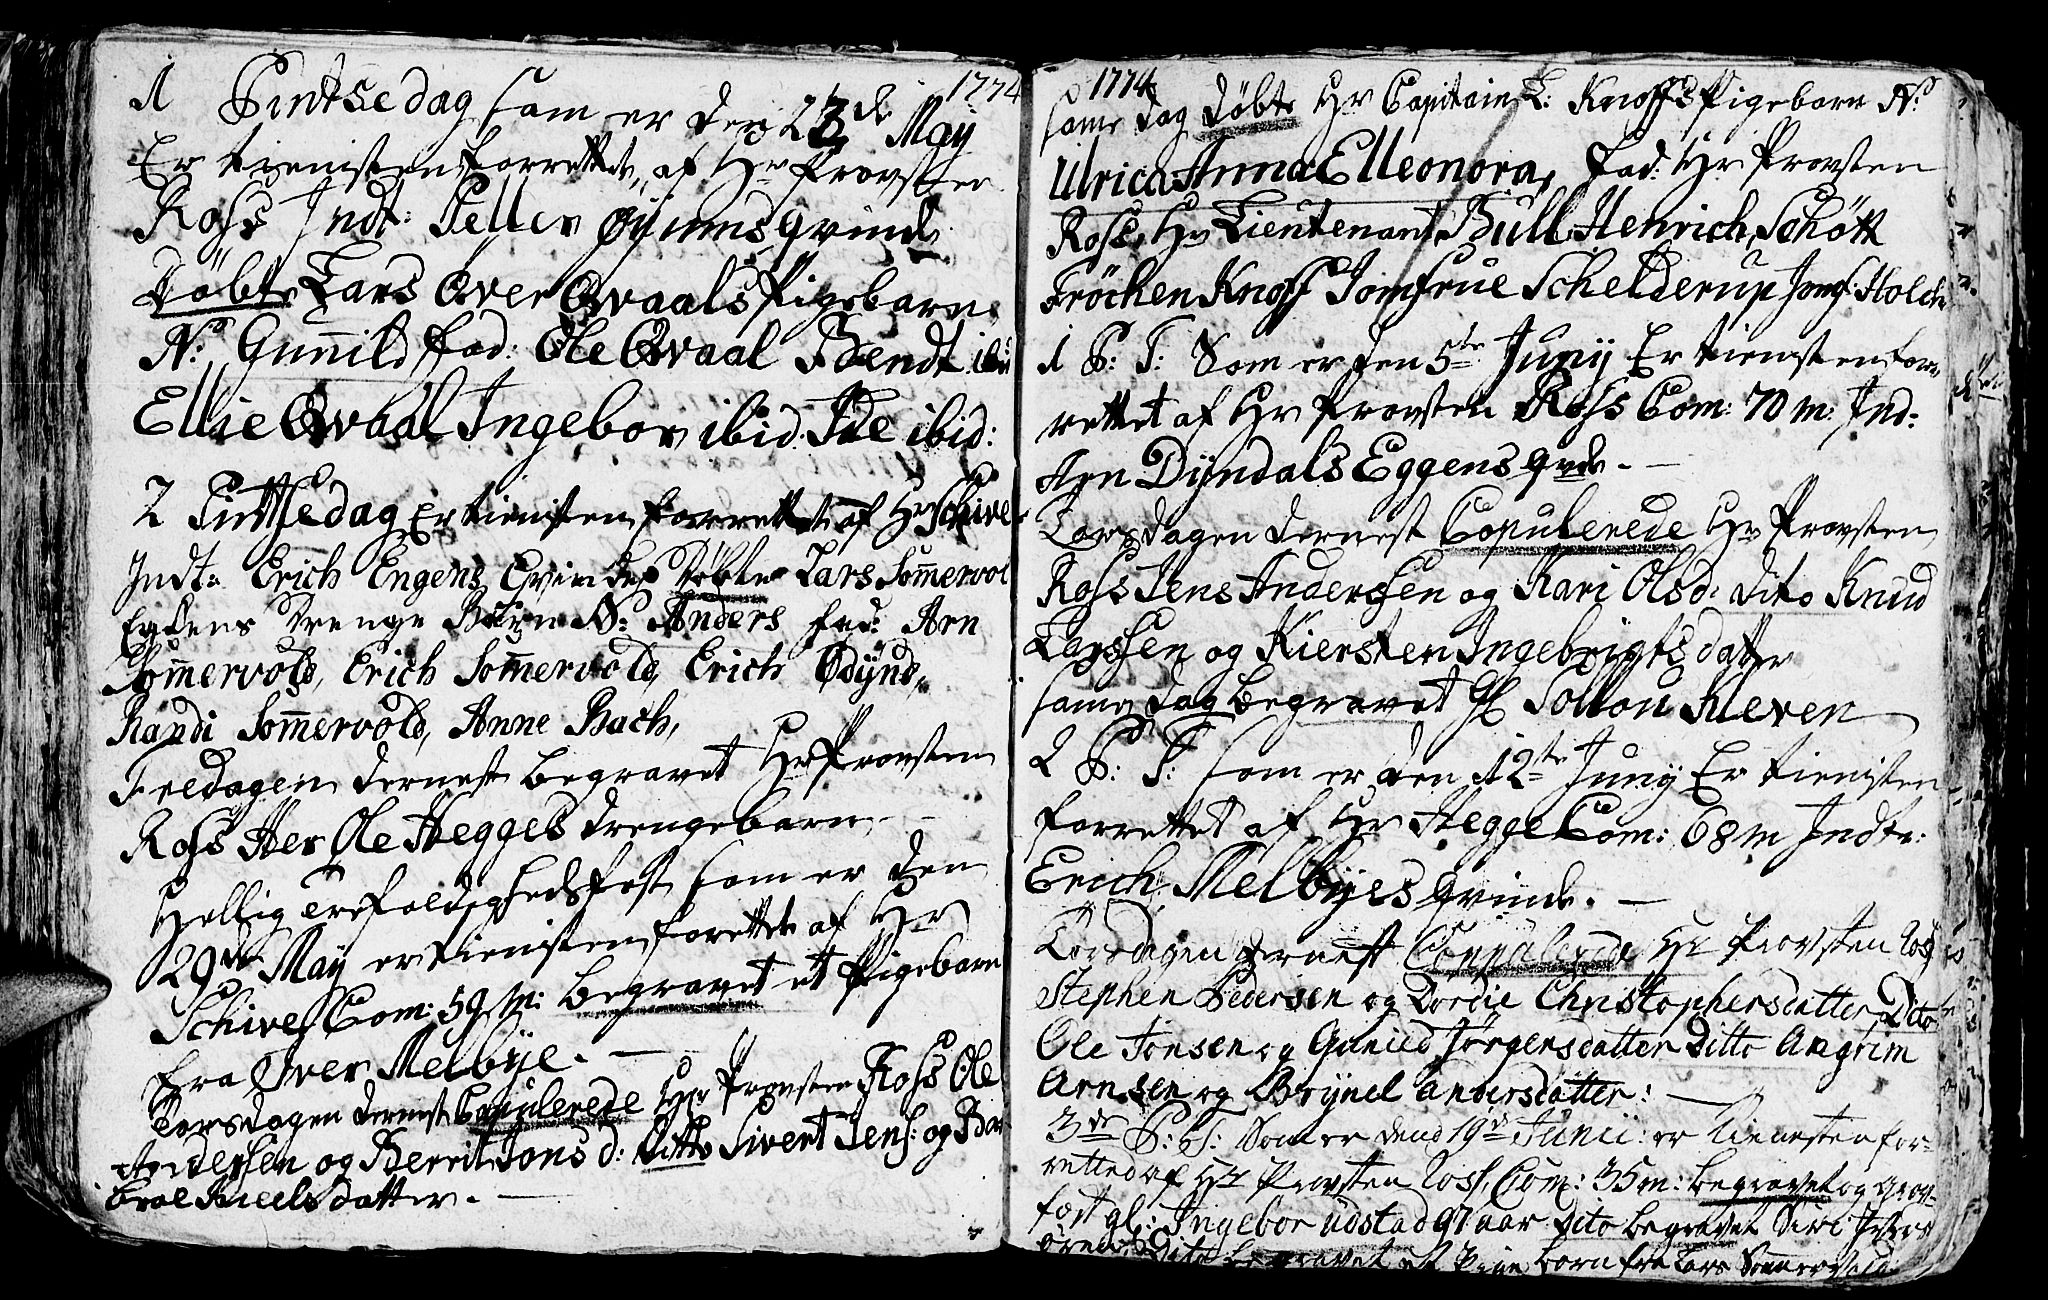 1774
1 Pintsedag som er den 23de May
Er tienisten forrettet af Hr Provsten
Ross Indt: Peller Øyumsqvinde
Døbte Lars Over Qvaals Pigebarn
N: Gunnild fad: Ole Qvaal Bendt ibid
Ellie Qvaal Ingebor ibid: Ide ibid:
2 Pintsedag Er tienisten forrettet af Hr Schive
Indt: Erich Engens Qvinde Døbte Lars Sommervol
Eidens drenge Barn N: Anders fad: Arn
Sommervold, Erich Sommervold, Erich Ødÿnd,
Randi Sommervold, Anne Bach,
Fredagen dernest begravet Hr Provsten
Ross Her Ole Hegges drengebarn
Hellig trefoldighedsfest som er den
29de May er tienisten forettet af Hr
Schive Com: 59 m: begravet et Pigebarn
fra Over Melbye.
Torsdagen dernest Copulerede Hr Provsten Ross Ole
Andersen og Berrit Jonsd: Ditto Sivert Jens: og Bar
broe Nieels datter.
1774
same dag døbte Hr Capitain L: Knoffs Pigebarn N:
Ulrica Anna Elleonora, fad: Hr Provsten
Ross, Hr Lieutenant Bull Henrich Schøtt
Frøchen Knoff Jomfrue Schelderup Jomf: Holch
1 S: T: Som er den 5te Juny Er tienisten for
rettet af Hr Provsten Ross Com: 70 m: Ind:
Arn Dÿndals Eggens qvde.
Torsdagen dernest Copulerede Hr Provsten
Ross Jens Anderssen og Kari Olsd: dito Knud
Larssen og Kiersten Ingebrigts datter
same dag begravet gl Sollou Kleven
2 S: T: som er den 12te Juny Er tienisten
forrettet af Hr Hegge Com: 68 m Indtr:
Erich Melbÿes qvinde.
Torsdagen dernest Copulerede Hr Provsten Ross
Stephen Pedersen og Dordie Christophersdatter Dito
Ole Jonsen og Gunild Jørgensdatter Ditto Angrim
Arnsen og Brÿnel andersdatter:
3de S: T: Som er dend 19de Junii: er tienesten for-
retted af Hr Provsten Ross, Com: 35 m: begravet og
fæst gl: Ingebor udstad 97 aar dito begravet Siri
Dito begravet et Pige born fra Lars Sommervold